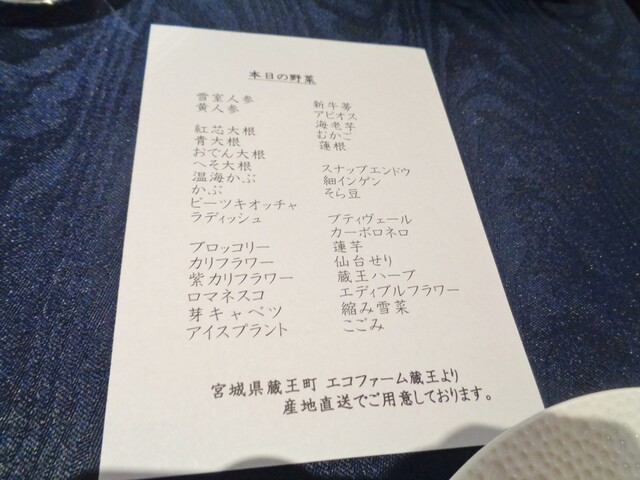 本日の野菜
雪室人参
黄人参
紅芯大根
青大根
おでん大根
へそ大根
温海かぶ
かぶ
ビーツキオッチャ
ラディッシュ
ブロッコリー
カリフラワー
紫カリフラワー
ロマネスコ
芽キャベツ
アイスプラント
新牛蒡
アピオス
海老芋
むかご
蓮根
スナップエンドウ
細インゲン
そら豆
プティヴェール
カーボロネロ
蓮芋
仙台せり
蔵王ハーブ
エディブルフラワー
縮み雪菜
こごみ
宮城県蔵王町 エコファーム蔵王より
産地直送でご用意しております。